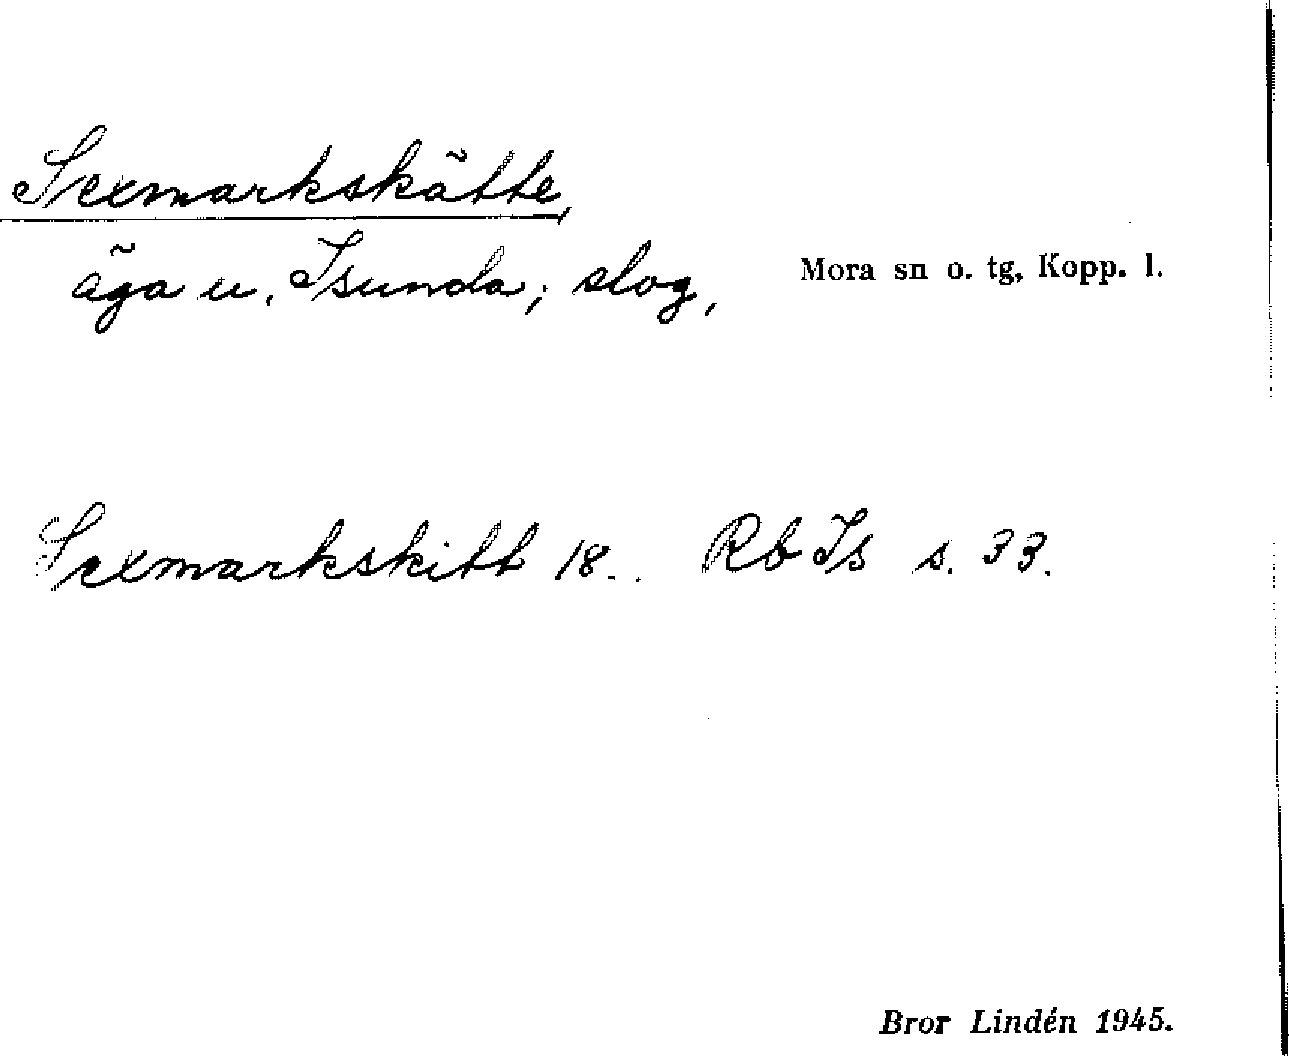 Sexmarkskätte,
äga u. Isunda; slog,
Mora sn o. tg, Kopp. l.
Sexmarkskitt 18.. Rb Is s. 33.
Bror Lindén 1945.